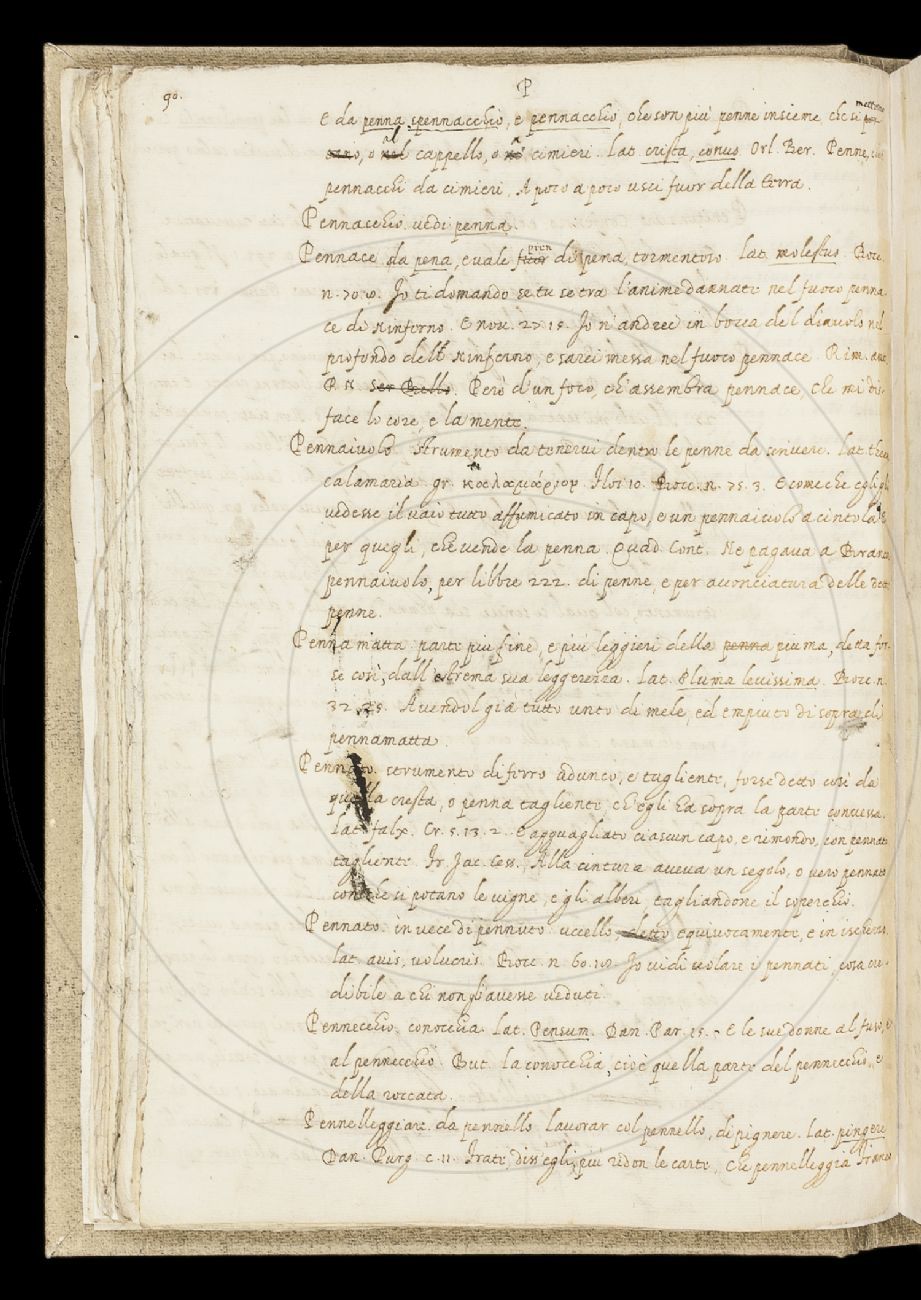 90.
P
E da penna spennacchio, e pennacchio, che son più penne insieme, che si mettono
o al cappello, o a' cimieri. Lat. crista, conus. Orl. Ber. Penne,
pennacchi da cimieri, A poco a poco uscì fuor della terra.
Pennacchio. vedi penna.
Pennace da pena, e vale pien di pena, tormentoso. Lat. molestus. Bocc.
n. 70. Io ti domando se tu se tra l'anime dannate nel fuoco penna
ce di Ninferno. E nov. 27. 15. Io n'andrei in bocca del diavolo nel
profondo dell Ninferno, e sarei messa nel fuoco pennace. Rim. ant.
P. N. Ser Pello. Però d'un foco, ch'assembra pennace, che mi dis-
face lo core, e la mente.
Pennaiuolo. Strumento da tenervi dentro le penne da scrivere. Lat. theca
calamaria. gr. Flos 10. Bocc. n. 75. 3. E come che egli gli
vedesse il vaio tutto affumicato in capo, e un pennaiuolo a cintola
per quegli, che vende la penna. Quad. Cont. Ne pagava a
pennaiuolo, per libbre 222. di penne, e per acconciatura delle dette
penne.
Penna matta. parte più fine, e più leggieri della penna piuma, detta for-
se così, dall'estrema sua leggerezza. Lat. Pluma levissima. Bocc. n.
32. 25. Avendol già tutto unto di mele, ed empiuto di sopra di
pennamatta.
Pennato. strumento di ferro adunco, e tagliente, forse detto così da
quella cresta, o penna tagliente ch'egli ha sopra la parte concussa.
Lat. falx. Cr. 5. 13. 2. E agguagliato ciascun capo, e rimondo, con pennato
tagliente. Fr. Jac. Cess. Alla cintura aveva un segolo, o vero pennato
con che si potano le vigne, e gli alberi, tagliandone il soperchio.
Pennato. in vece di pennuto. uccello, detto equivocamente, e in ischerzo.
lat. avis, volucris. Bocc. n. 60. Io vidi volare i pennati, cosa cre-
dibile a chi non gli avesse veduti.
Pennecchio. conocchia. Lat. Pensum. Dan. Par. 15. - E le sue donne al fuso, e
al pennecchio. But. la conocchia, cioè quella parte del pennecchio, e
della roccata.
Pennelleggiare. da pennello. lavorar col pennello, dipignere. Lat. pingere
Dan. Purg. c. 11. Frate, diss'egli, più ridon le carte, Che pennelleggia Franco